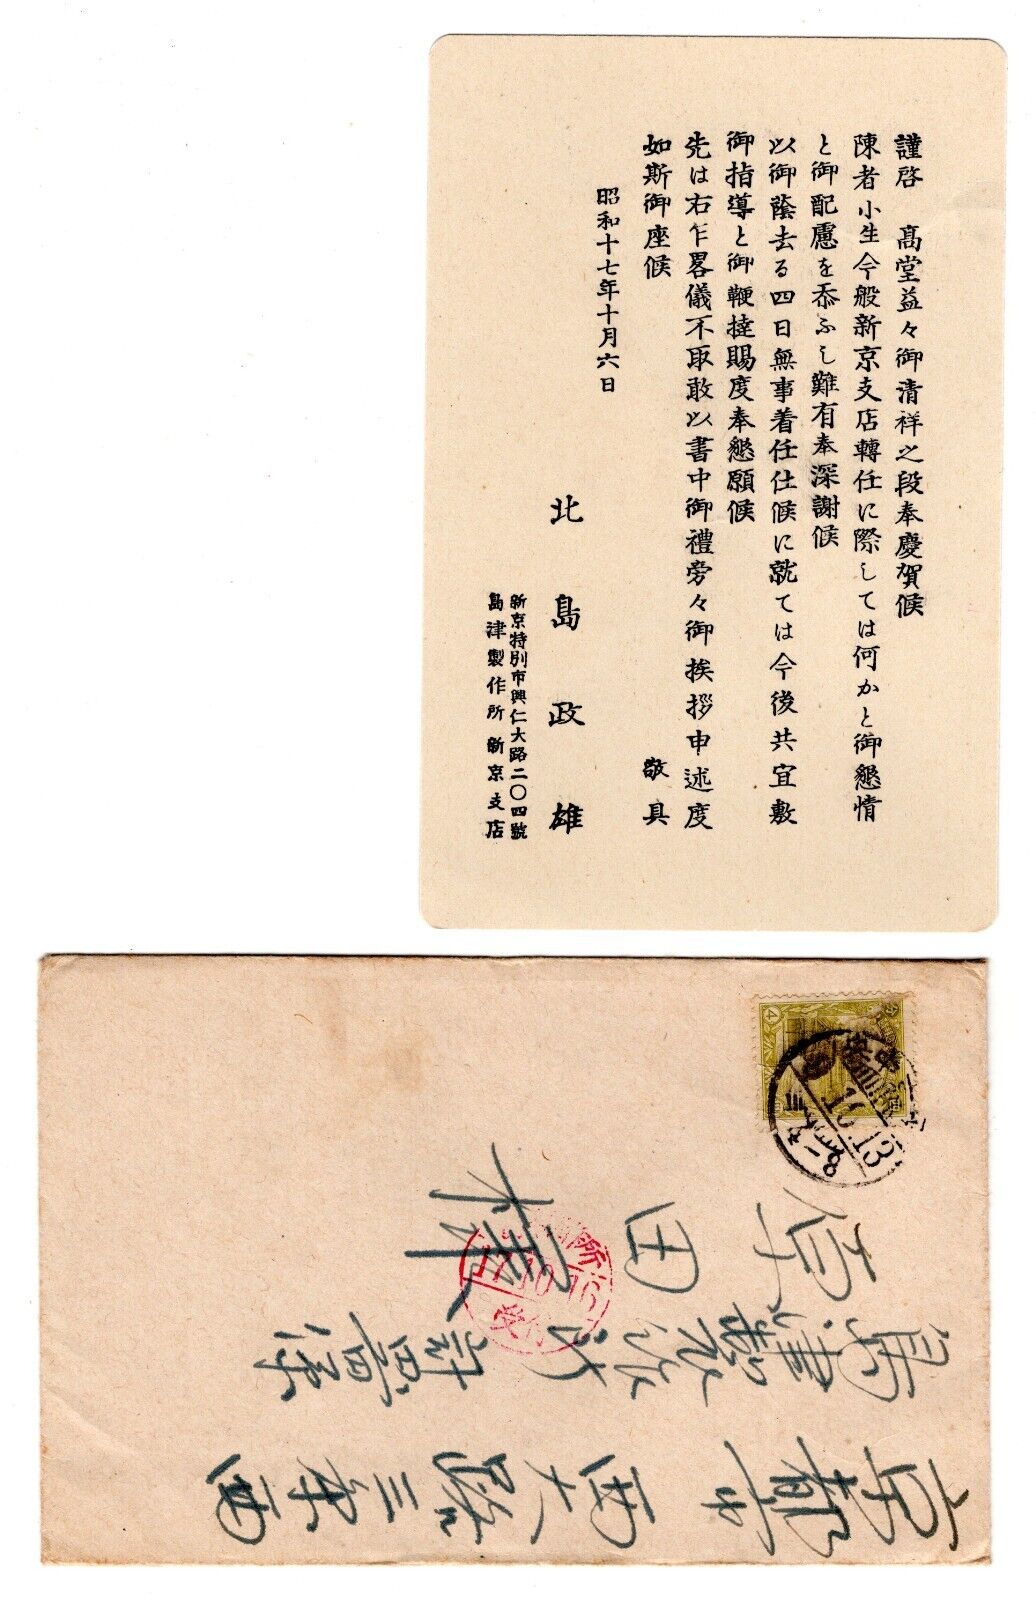 謹啓　高堂益々御清祥之段奉慶賀候
陳者小生今般新京支店轉任に際しては何かと御懇情
と御配慮を忝ふし難有奉深謝候
以御蔭去る四日無事着任仕候に就ては今後共宜敷
御指導と御鞭撻賜度奉懇願候
先は右乍畧儀不取敢以書中御禮旁々御挨拶申述度
如斯御座候　敬具
昭和十七年十月六日
北島政雄
新京特別市興仁大路二〇四號
島津製作所新京支店
京都市西大路三条西
島津製作所
田
様
4
16.13
17.10.16
所
受